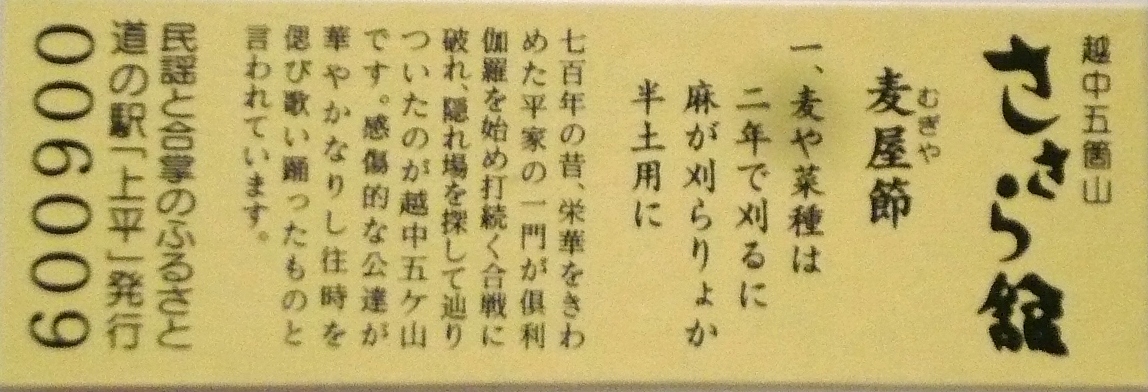 越中五箇山
ささら館
むぎや
麦屋節
一、麦や菜種は
二年で刈るに
麻が刈らりょか
半土用に
七百年の昔、栄華をきわ
めた平家の一門が倶利
伽羅を始め打続く合戦に
破れ、隠れ場を探して辿り
ついたのが越中五ケ山
です。感傷的な公達が
華やかなりし往時を
偲び歌い踊ったものと
言われています。
民謡と合掌のふるさと
道の駅「上平」発行
006009